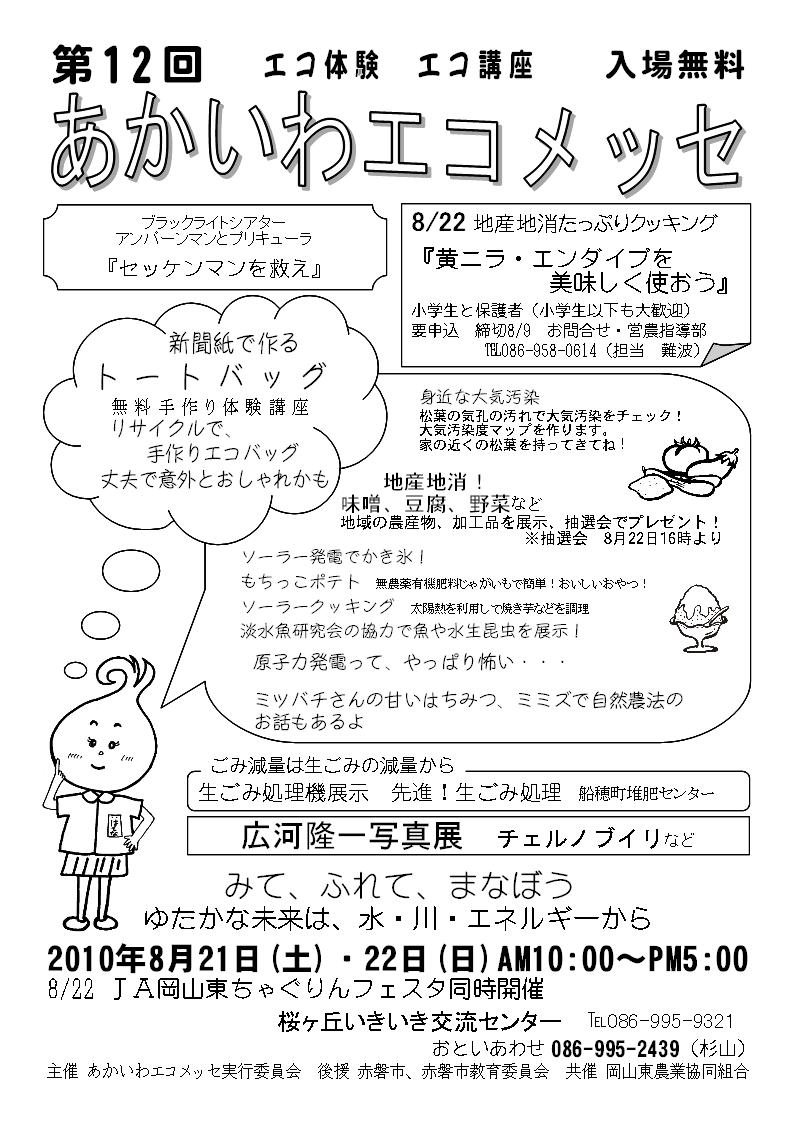 第12回　エコ体験　エコ講座　入場無料
あかいわエコメッセ
ブラックライトシアター
アンバーンマンとプリキューラ
『セッケンマンを救え』
8/22 地産地消たっぷりクッキング
『黄ニラ・エンダイブを
美味しく使おう』
小学生と保護者（小学生以下も大歓迎）
要申込　締切8/9　お問合せ・営農指導部
℡086-958-0614（担当　難波）
新聞紙で作る
トートバッグ
無料手作り体験講座
リサイクルで、
手作りエコバッグ
丈夫で意外とおしゃれかも
身近な大気汚染
松葉の気孔の汚れで大気汚染をチェック！
大気汚染度マップを作ります。
家の近くの松葉を持ってきてね！
地産地消！
味噌、豆腐、野菜など
地域の農産物、加工品を展示、抽選会でプレゼント！
※抽選会　8月22日16時より
ソーラー発電でかき氷！
もちっこポテト　無農薬有機肥料じゃがいもで簡単！おいしいおやつ！
ソーラークッキング　太陽熱を利用して焼き芋などを調理
淡水魚研究会の協力で魚や水生昆虫を展示！
原子力発電って、やっぱり怖い・・・
ミツバチさんの甘いはちみつ、ミミズで自然農法の
お話もあるよ
ごみ減量は生ごみの減量から
生ごみ処理機展示　先進！生ごみ処理　船穂町堆肥センター
広河隆一写真展　チェルノブイリなど
みて、ふれて、まなぼう
ゆたかな未来は、水・川・エネルギーから
2010年8月21日(土)・22日(日)AM10:00～PM5:00
8/22 ＪＡ岡山東ちゃぐりんフェスタ同時開催
桜ヶ丘いきいき交流センター　℡086-995-9321
おといあわせ 086-995-2439（杉山）
主催 あかいわエコメッセ実行委員会　後援 赤磐市、赤磐市教育委員会　共催 岡山東農業協同組合